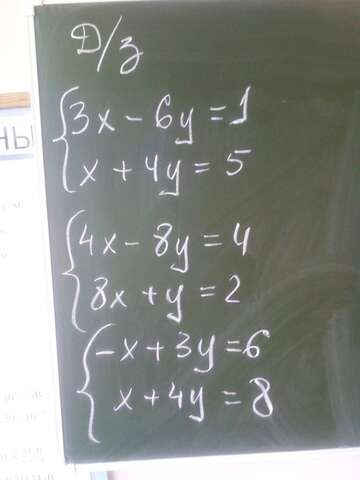 Д/з
3x - 6y = 1
x + 4y = 5
4x - 8y = 4
8x + y = 2
-x + 3y = 6
x + 4y = 8